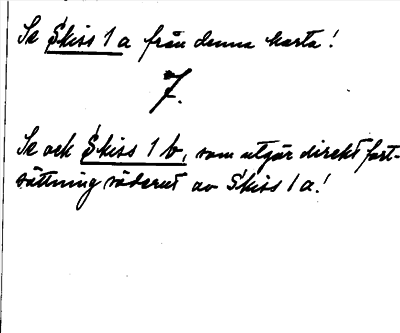 Se Skiss 1 a från denna karta!
7.
Se ock Skiss 1 b, som utgör direkt fort-
sättning söderut av Skiss 1 a!